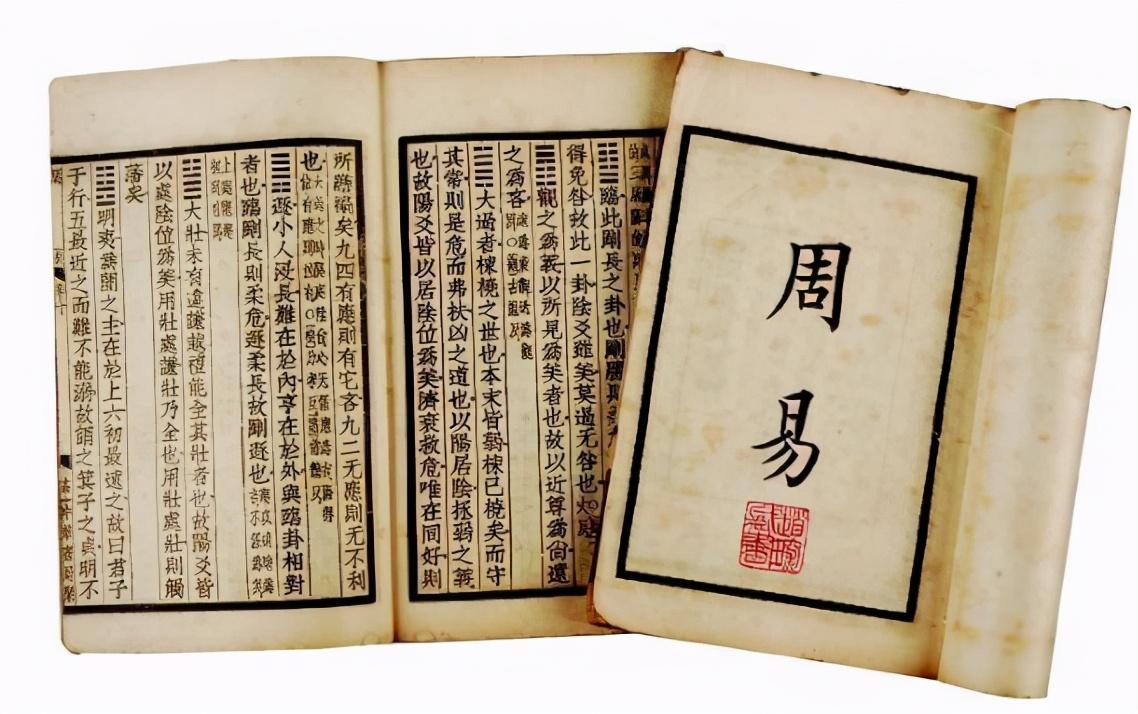 周易
䷒臨此剛長之卦也剛勝則
得免咎故此一卦陰爻雖美莫過无咎也
䷓觀之爲義以所見爲美者也故以近尊爲尚遠
之爲吝
䷛大過者棟橈之世也本末皆弱棟已橈矣而守
其常則是危而弗扶凶之道也以陽居陰拯弱之義
也故陽爻皆以居陰位爲美濟衰救危唯在同好則
所贍褊矣九四有應則有它吝九二无應則无不利
也
䷠遯小人浸長難在於內亨在於外與臨卦相對
者也臨剛長則柔危遯柔長故剛遯也
䷡大壯未有違謙越禮能全其壯者也故陽爻皆
以處陰位爲美用壯處謙壯乃全也用壯處壯則觸
藩矣
䷣明夷爲闇之主在於上六初最遠之故曰君子
于行五最近之而難不能溺故謂之箕子之貞明不